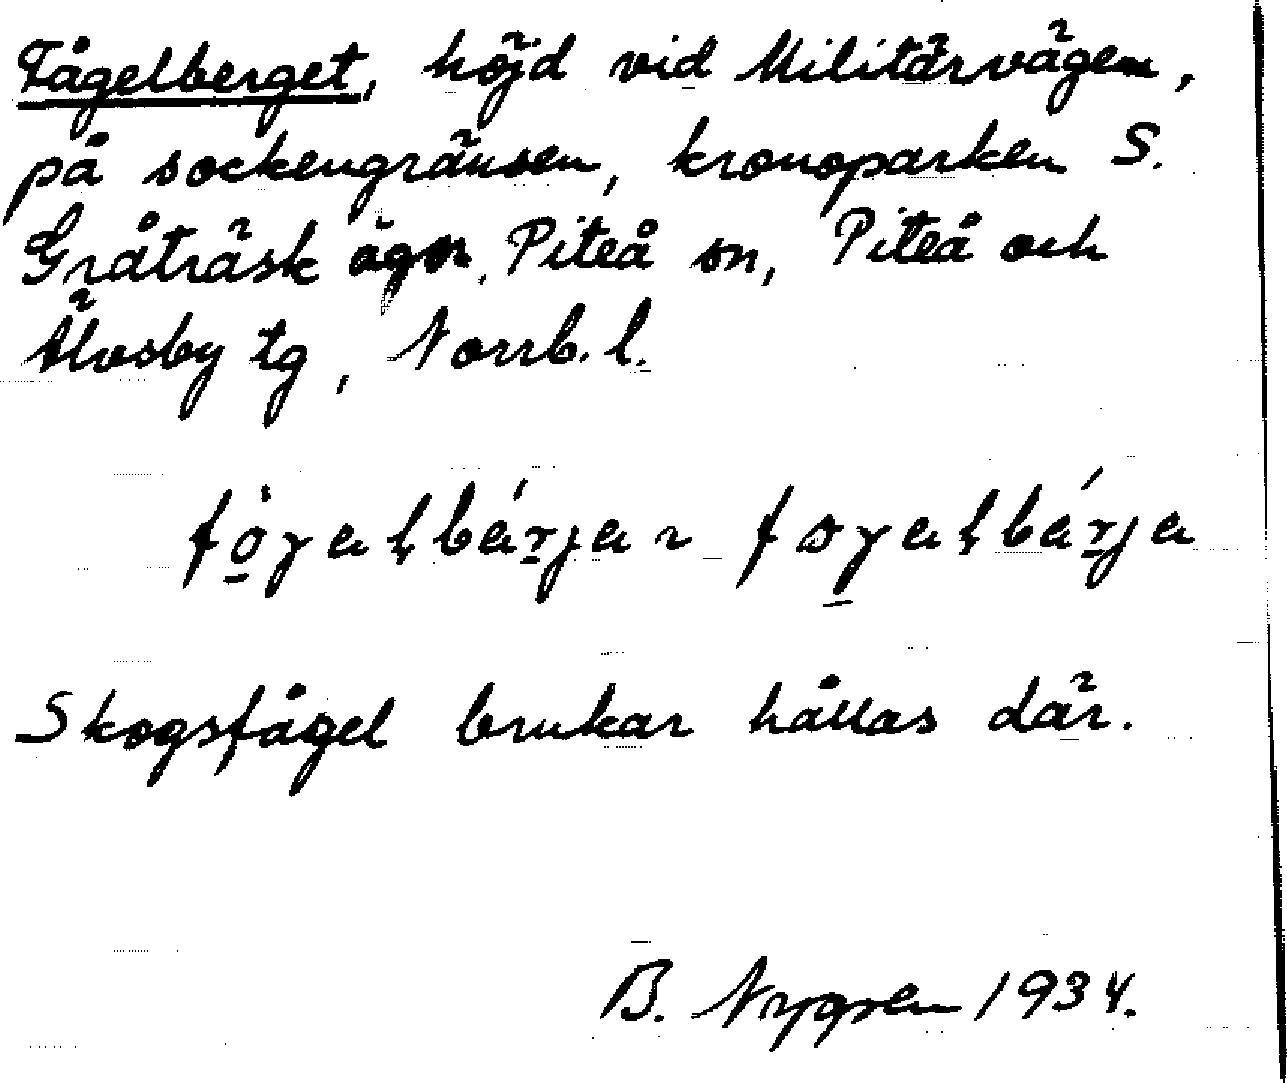 Fågelberget, höjd vid Militärvägen,
på sockengränsen, kronoparken S.
Gråträsk ägor, Piteå sn, Piteå och
Älvsby tg, Norrb. l.
Skogsfågel brukar hållas där.
B. Nygren 1934.